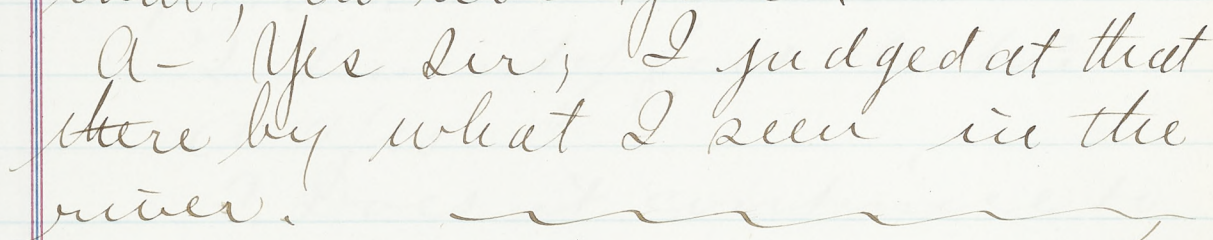 A- Yes Sir; I judged at that
there by what I seen in the
river.